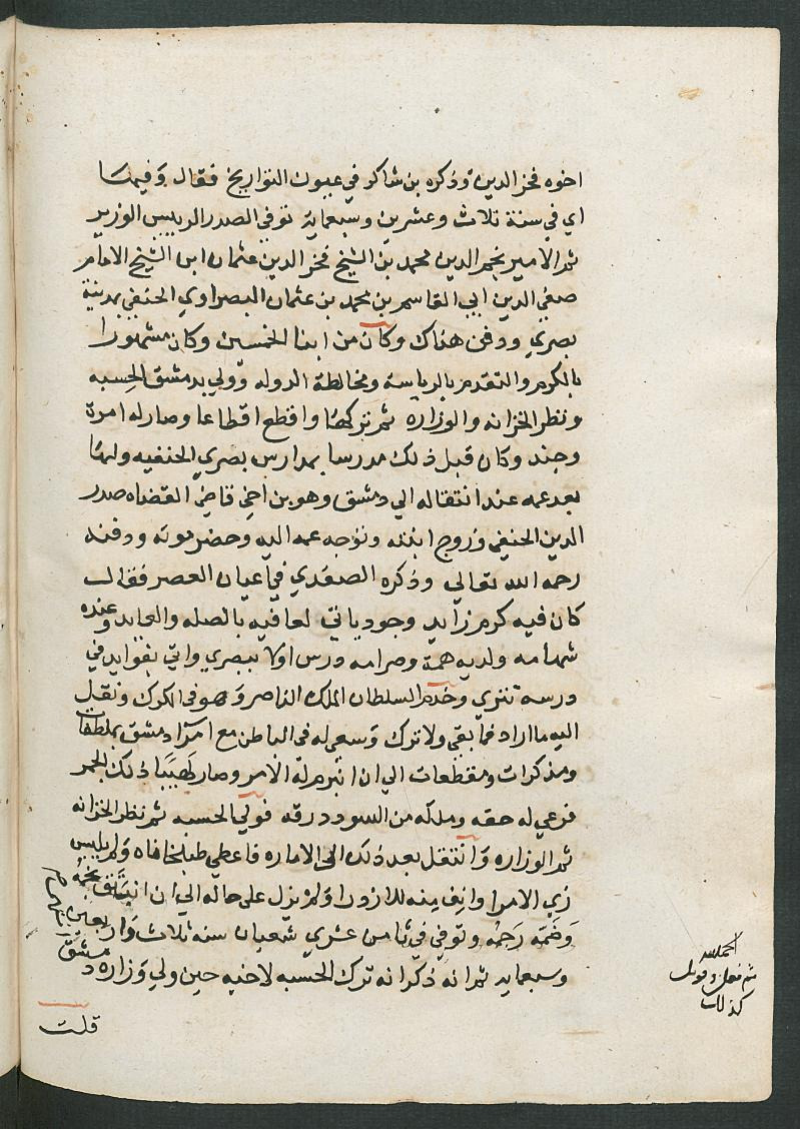 اخوه فخر الدين وذكره بن شاكر في عيون التواريخ فقال وفيها
اي في سنة ثلاث وعشرين وسبعماية توفي الصدر الرييس الوزير
ثم الامير نجم الدين محمد بن الشيخ فخر الدين عثمان ابن الشيخ الامام
صفي الدين ابي القاسم بن محمد بن عثمان البصراوي الحنفي بمدينة
بصري ودفن هناك وكان من ابنا الخمسين وكان مشهورا
بالكرم والتقدم بالرياسة ومخالطة الدوله وولي بدمشق الحسبه
ونظر الخزانه والوزاره ثم تركها واقطع اقطاعا وصار له امرة
وجند وكان قبل ذلك مدرسا بمدارس بصري الحنفيه وليها
بعد عمه عند انتقاله الي دمشق وهو بن اخي قاضي القضاه صدر
الدين الحنفي وزوج ابنته وتوجه عمه اليه وحضر موته ودفنه
رحمه الله تعالي وذكره الصفدي في اعيان العصر فقال
كان فيه كرم زايد وجود ياتي لعافيه بالصله والعايد وعنده
شهامه ولديه همة وصرامه ودرس اولا ببصري واتي بفوايد في
درسه تتري وخدم السلطان الملك الناصر وهو في الكرك ونقل
اليه ما اراد فما بقي ولا ترك وسعي له في الباطن مع امرآ دمشق بملطفات
ومذكرات ومقطعات الي ان انبرم له الامر وصار لهيبا ذلك الجمر
فرعي له حقه وملكه من السودد رقه فولي الحسبه ثم نظر الخزانه
ثم الوزاره وانتقل بعد ذلك الي الاماره فاعطي طبلخاناه ولم يلبس
زي الامرا وانف منه للازدرا ولم يزل علي حاله الي ان
وضمه رجمه وتوفي في ثامن عشري شعبان سنه ثلاث وار بعين
وسبعمايه ثم انه ذكر انه ترك الحسبه لاخيه حين ولي وزاره دمشق
قلت
الحمد لله
ثم
كذلك